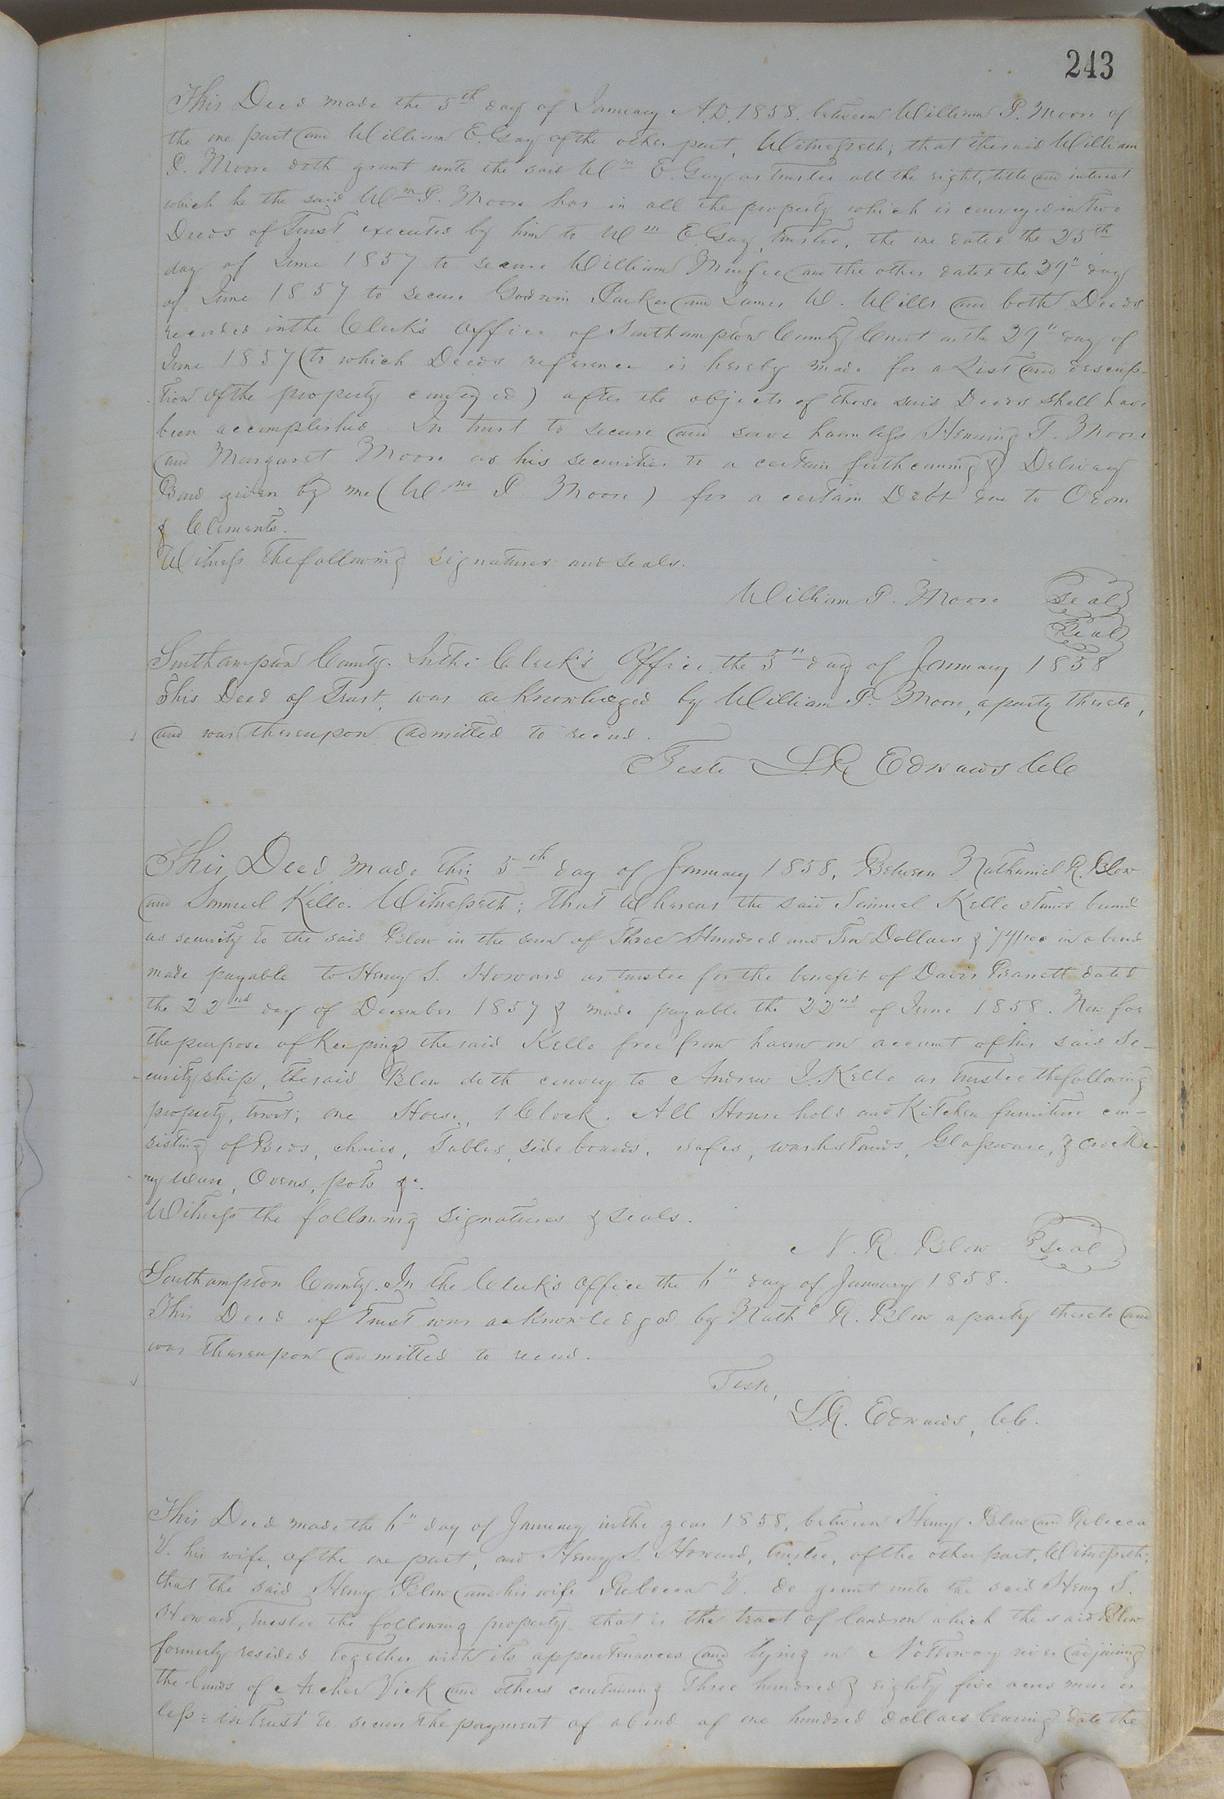 243
This Deed made the 5th day of January A.D. 1858. between William P. Moore of
the one part and William E. Gay of the other part, Witnesseth; that the said William
P. Moore doth grant unto the said Wm E. Gay as trustee all the right, title and interest
which he the said Wm P. Moore has in all the property which is conveyed in Two
Deeds of Trust executed by him to Wm E Gay, trustee, the one dated the 25th
day of June 1857 to secure William and the other dated the 29" day
of June 1857 to secure Godwin Parker and James W. Wills and both Deeds
recorded in the Clerk's Office of Southampton County Court on the 29" day of
June 1857 (to which Deeds reference is hereby made for a List and descrip-
tion of the property conveyed) after the objects of those said Deeds shall have
been accomplished. In trust to secure and save harmless Henning T. Moore
and Margaret Moore as his securities to a certain forthcoming & Delivery
Bond given by me (Wm P. Moore) for a certain Debt due to Odom
& Clements.
Witness the following signatures and seals.
William P. Moore Seal
Seal
Southampton County. In the Clerk's Office the 5" day of January 1858
This Deed of Trust, was acknowledged by William P. Moore, a party thereto,
and was thereupon admitted to record.
Teste L R Edwards CC
This Deed made this 5th day of January 1858, Between Nathaniel R. Blow
and Samuel Kello. Witnesseth; That Whereas the said Samuel Kello stands bound
as security to the said Blow in the sum of Three Hundred and Ten Dollars & 74/100 in a bond
made payable to Henry S. Howard as trustee for the benefit of Davis Barrett dated
the 22nd day of December 1857 & made payable the 22nd of June 1858. Now for
the purpose of Keeping the said Kello free from harm on account of his said Se-
curityship, the said Blow doth convey to Andrew J. Kello as trustee the following
property, towit; one Horse, 1 Clock. All House hold and Kitchen furniture con-
sisting of Beds, chairs, Tables, side boards, safes, washstands, Glassware, & crocke-
ry ware, Ovens, pots &c.
Witness the following signatures & seals.
N. R. Blow Seal
Southampton County. In the Clerk's Office the 6" day of January 1858.
This Deed of Trust was acknowledged by Nathl R. Blow a party thereto and
was thereupon admitted to record.
Teste,
L.R. Edwards, CC.
This Deed made the 6" day of January in the year 1858, between Henry Blow and Rebecca
V. his wife, of the one part, and Henry S. Howard, trustee, of the other part, Witnesseth;
that the said Henry Blow and his wife Rebecca V. do grant unto the said Henry S.
Howard, trustee the following property. that is the tract of land on which the said Blow
formerly resided together with its appurtenances and lying on Nottoway river adjoining
the lands of Archer Vick and others containing Three hundred & eighty five acres more or
less = in trust to secure the payment of a bond of one hundred dollars bearing date the